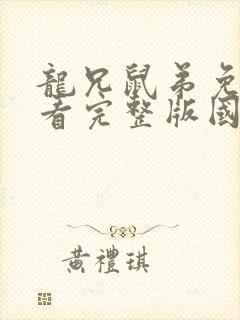 龍兄鼠弟免
看完整版國
黃禮琪